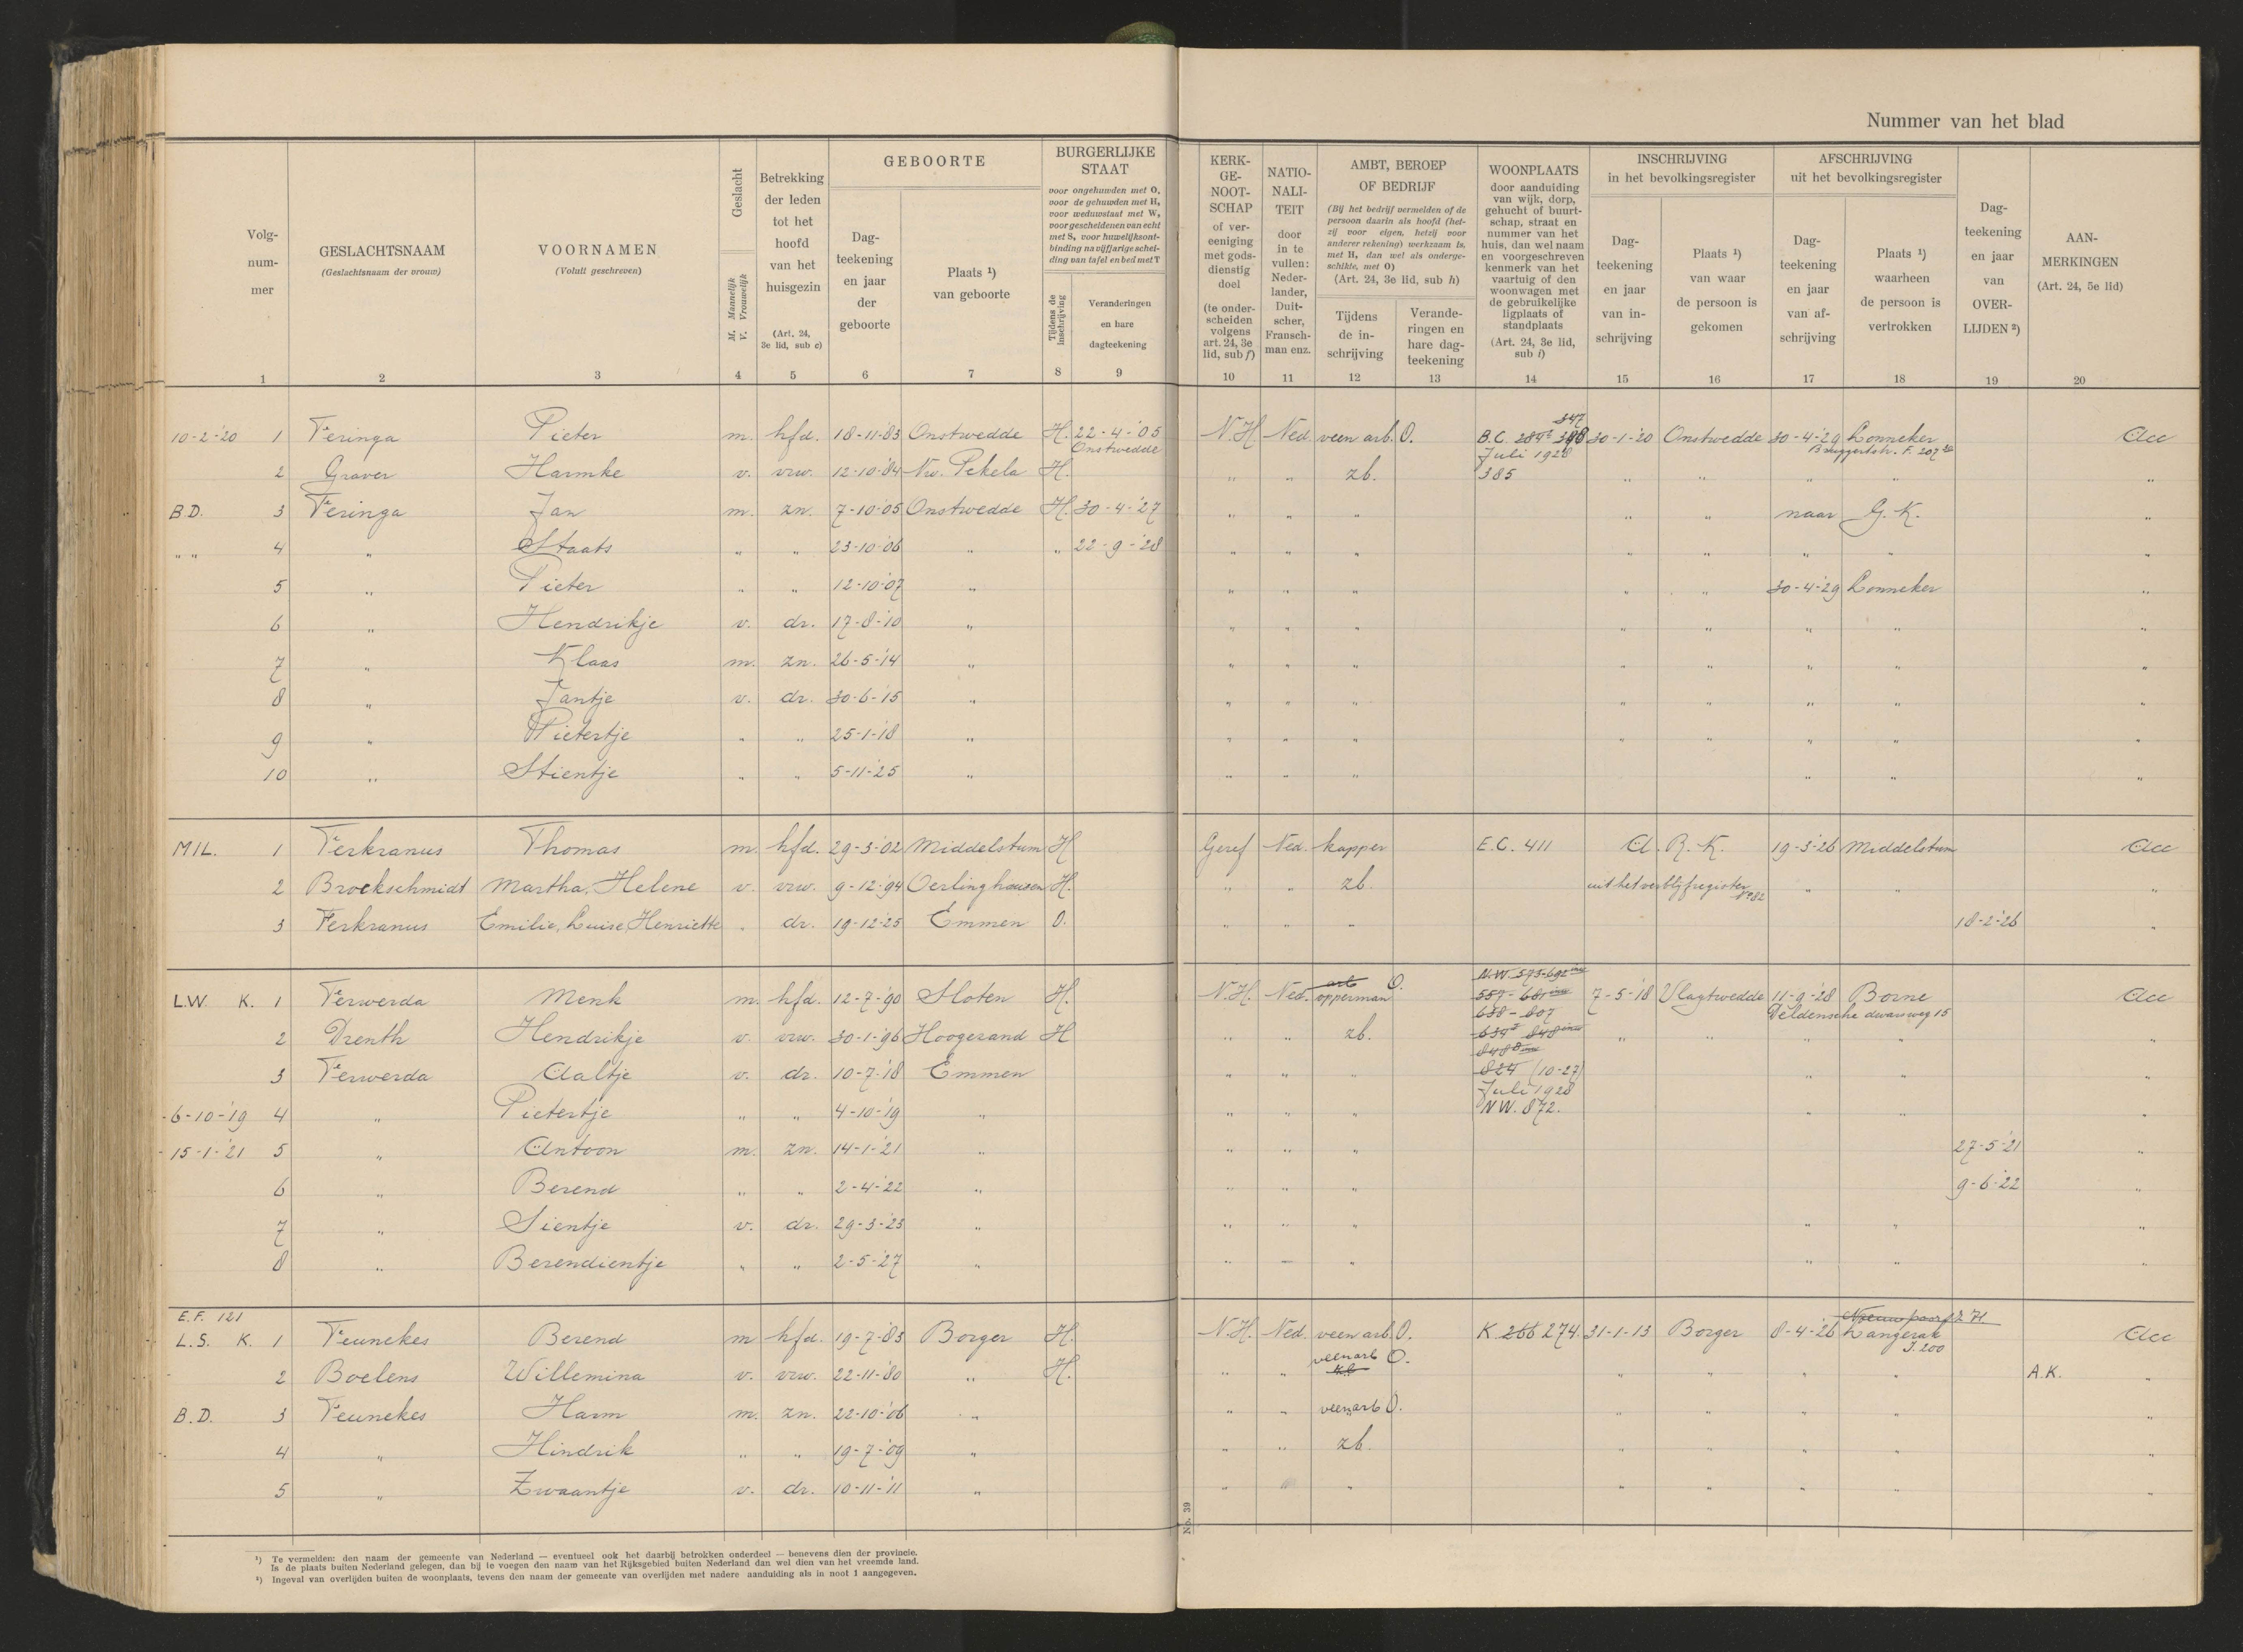 Nummer van het blad
Volg-
num-
mer
1
GESLACHTSNAAM
(Geslachtsnaam der vrouw)
2
VOORNAMEN
(Voluit geschreven)
3
Geslacht
M. Mannelijk
V. Vrouwelijk
4
Betrekking
der leden
tot het
hoofd
van het
huisgezin
(Art. 24,
3e lid, sub c)
5
GEBOORTE
Dag-
teekening
en jaar
der
geboorte
6
Plaats ¹)
van geboorte
7
BURGERLIJKE
STAAT
voor ongehuwden met O,
voor de gehuwden met H,
voor weduwstaat met W,
voor gescheidenen van echt
met S, voor huwelijksont-
binding na vijfjarige schei-
ding van tafel en bed met T
Tijdens de
inschrijving
8
Veranderingen
en hare
dagteekening
9
KERK-
GE-
NOOT-
SCHAP
of ver-
eeniging
met gods-
dienstig
doel
(te onder-
scheiden
volgens
art. 24, 3e
lid, sub f)
10
NATIO-
NALI-
TEIT
door
in te
vullen:
Neder-
lander,
Duit-
scher,
Fransch-
man enz.
11
AMBT, BEROEP
OF BEDRIJF
(Bij het bedrijf vermelden of de
persoon daarin als hoofd (het-
zij voor eigen, hetzij voor
anderer rekening) werkzaam is,
met H, dan wel als onderge-
schikte, met O)
(Art. 24, 3e lid, sub h)
Tijdens
de in-
schrijving
12
Verande-
ringen en
hare dag-
teekening
13
WOONPLAATS
door aanduiding
van wijk, dorp,
gehucht of buurt-
schap, straat en
nummer van het
huis, dan wel naam
en voorgeschreven
kenmerk van het
vaartuig of den
woonwagen met
de gebruikelijke
ligplaats of
standplaats
(Art. 24, 3e lid,
sub i)
14
INSCHRIJVING
in het bevolkingsregister
Dag-
teekening
en jaar
van in-
schrijving
15
Plaats ¹)
van waar
de persoon is
gekomen
16
AFSCHRIJVING
uit het bevolkingsregister
Dag-
teekening
en jaar
van af-
schrijving
17
Plaats ¹)
waarheen
de persoon is
vertrokken
18
Dag-
teekening
en jaar
van
OVER-
LIJDEN ²)
19
AAN-
MERKINGEN
(Art. 24, 5e lid)
20
347
10-2-'20 1 Teringa Pieter m. hfd. 18-11-'83 Onstwedde H. 22-4-'05 N.H. Ned. veen arb. O. B.C. 30-1-'20 Onstwedde 30-4-'29 Lonneker Acc
Onstwedde Juli 1928 F. 207
2 Graver Harmke v. vrw. 12-10-'84 Nw. Pekela H. " " zb. 385 " " " " "
B.D. 3 Teringa Jan m. zn. 7-10-'05 Onstwedde H. 30-4-'27 " " " " " naar G.K. "
" " 4 " Staats " " 23-10-'06 " " 22-9-'28 " " " " " " " "
5 " Pieter " " 12-10-'07 " " " " " " 30-4-'29 Lonneker "
6 " Hendrikje v. dr. 17-8-'10 " " " " " " " " "
7 " Klaas m. zn. 26-5-'14 " " " " " " " " "
8 " Jantje v. dr. 30-6-'15 " " " " " " " " "
9 " Pietertje " " 25-1-'18 " " " " " " " " "
10 " Stientje " " 5-11-'25 " " " " " " "
MIL. 1 Terkranus Thomas m. hfd. 29-3-'02 Middelstum H Geref Ned. kapper E.C. 411 A.R.K. 19-3-'26 Middelstum Acc
2 Brockschmidt Martha, Helene v. vrw. 9-12-'94 Oerlinghausen H. " " zb. uit het verblijfregister " " "
No 82
3 Terkranus Emilie, Luise, Henriette " dr. 19-12-'25 Emmen O. " " " 18-2-'26 "
N.W. 593-692
L.W. K. 1 Terwerda Menk m. hfd. 12-7-'90 Sloten H. N.H. Ned. arb opperman O. 557-681 7-5-'18 Vlagtwedde 11-9-'28 Borne Acc
638-807 Deldensche dwarsweg 15
2 Drenth Hendrikje v. vrw. 30-1-'96 Hoogezand H " " zb. 848 " " " " "
3 Terwerda Aaltje v. dr. 10-7-'18 Emmen " " " 824 (10-27) " " "
Juli 1928
6-10-'19 4 " Pietertje " " 4-10-'19 " " " " N.W. 872. " " "
15-1-'21 5 " Antoon m. zn. 14-1-'21 " " " " 27-5-'21 "
6 " Berend " " 2-4-'22 " " " " 9-6-'22 "
7 " Sientje v. dr. 29-3-'25 " " " " " " "
8 " Berendientje " " 2-5-'27 " " " " " "
E.F. 121
L.S. K. 1 Teunekes Berend m hfd. 19-7-'83 Borger H. N.H. Ned. veen arb. O. K. 266 274. 31-1-'13 Borger 8-4-'26 Langerak Acc
veenarb O. J. 200
2 Boelens Willemina v. vrw. 22-11-'80 " H. " " " " " " A.K. "
B.D. 3 Teunekes Harm m. zn. 22-10-'06 " " " veenarb O. " " " " "
4 " Hindrik " " 19-7-'09 " " " zb. " " " " "
5 " Zwaantje v. dr. 10-11-'11 " " " " " " " "
No. 39
¹) Te vermelden: den naam der gemeente van Nederland — eventueel ook het daarbij betrokken onderdeel — benevens dien der provincie.
Is de plaats buiten Nederland gelegen, dan bij te voegen den naam van het Rijksgebied buiten Nederland dan wel dien van het vreemde land.
²) Ingeval van overlijden buiten de woonplaats, tevens den naam der gemeente van overlijden met nadere aanduiding als in noot 1 aangegeven.